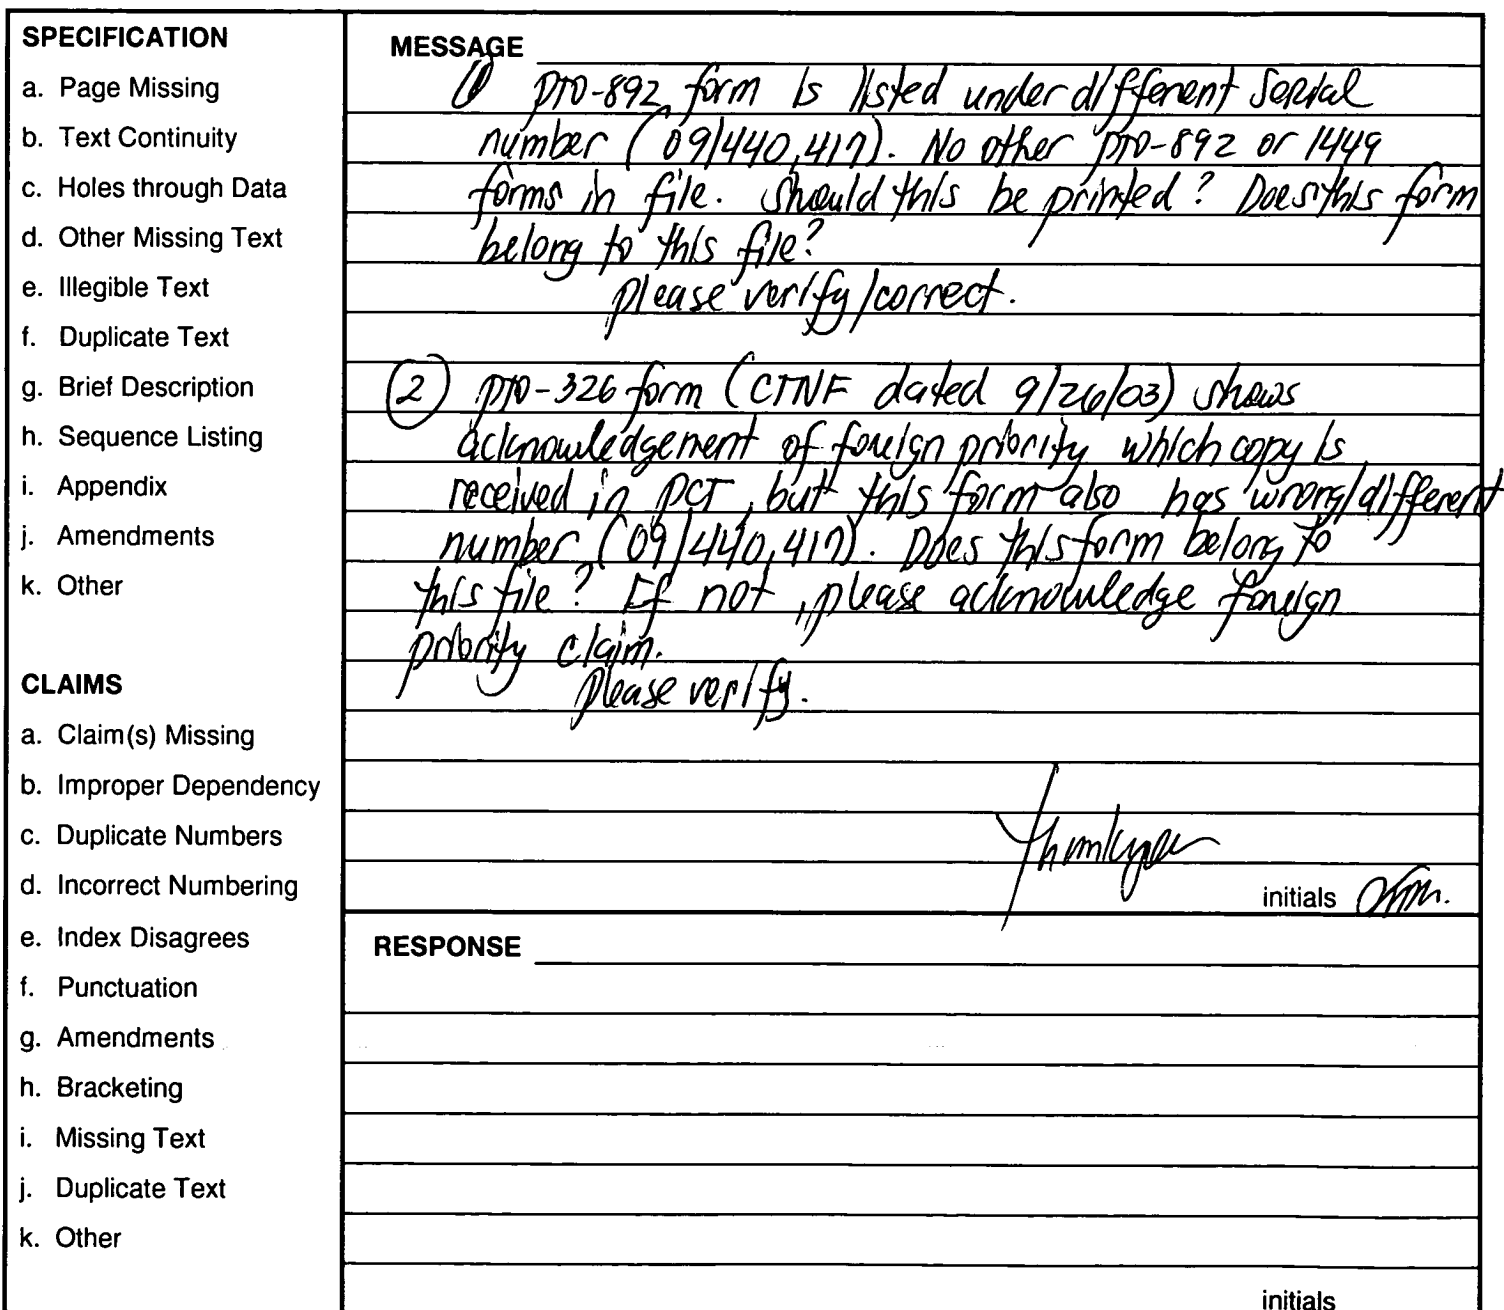 SPECIFICATION
a. Page Missing
b. Text Continuity
c. Holes through Data
d. Other Missing Text
e. Illegible Text
f. Duplicate Text
g. Brief Description
h. Sequence Listing
i. Appendix
j. Amendments
k. Other
CLAIMS
a. Claim(s) Missing
b. Improper Dependency
c. Duplicate Numbers
d. Incorrect Numbering
e. Index Disagrees
f. Punctuation
g. Amendments
h. Bracketing
i. Missing Text
j. Duplicate Text
k. Other
MESSAGE
① PTO-892 form is listed under different Serial
number (09/440,417). No other PTO-892 or 1449
forms in file. Should this be printed? Does this form
belong to this file?
please verify/correct.
② PTO-326 form (CTNF dated 9/26/03) shows
acknowledgement of foreign priority which copy is
received in PCT, but this form also has wrong/different
number (09/440,417). Does this form belong to
this file? If not, please acknowledge foreign
priority claim.
Please verify.
Thank you
initials
RESPONSE
initials